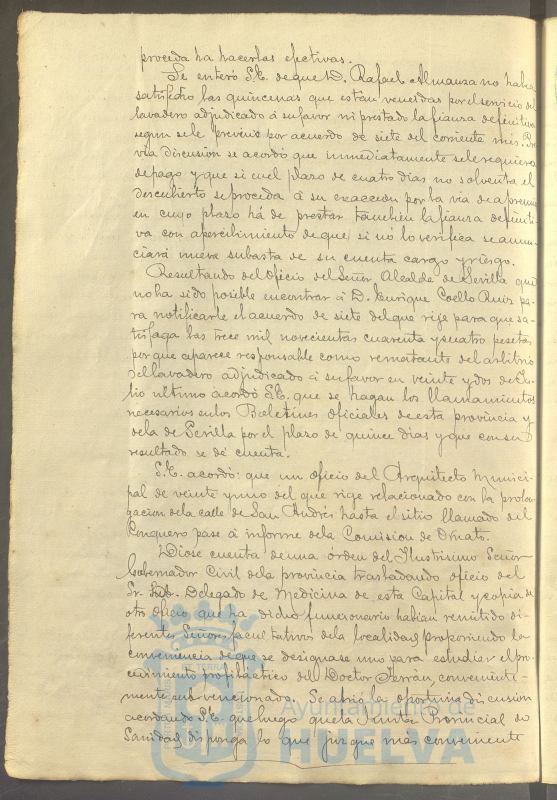 proceda há hacerlas efectivas.
Se enteró S.E. de que D. Rafael Almanza no habia
satisfecho las quincenas que están vencidas por el servicio del
lavadero adjudicado á su favor ni prestado la fianza definitiva
segun se le previno por acuerdo de siete del corriente mes. Pre
via discusion se acordó que inmediatamente se le requiera
de pago y que si en el plazo de cuatro dias no solventa el
descubierto se proceda á su exaccion por la via de apremio
en cuyo plazo há de prestar tambien la fianza definiti
va con apercibimiento de que si nó lo verifica se anun
ciará nueva subasta de su cuenta cargo y riesgo.
Resultando del Oficio del Señor Alcalde de Sevilla que
no ha sido posible encontrar á D. Enrique Coello Ruiz pa
ra notificarle el acuerdo de siete del que rige para que sa-
tisfaga las trece mil novecientas cuarenta y cuatro pesetas
por que aparece responsable como rematante del arbitrio
del lavadero adjudicado á su favor en veinte y dos de Ju
lio último acordó S.E. que se hagan los llamamientos
necesarios en los Boletines oficiales de esta provincia y
de la de Sevilla por el plazo de quince dias y que con su
resultado se dé cuenta.
S.E. acordó: que un oficio del Arquitecto Munici-
pal de veinte y uno del que rige relacionado con la prolon-
gacion de la calle de San Andrés hasta el sitio llamado del
Conquero pase á informe de la Comision de Ornato.
Dióse cuenta de una órden del Ilustrisimo Señor
Gobernador Civil de la provincia trasladando oficio del
Sr. Sub. Delegado de Medicina de esta Capital y copia de
otro oficio que ha dicho funcionario habian remitido di-
ferentes Señores facultativos de la localidad proponiendo la
conveniencia de que se designase uno para estudiar el pro-
cedimiento profilactico del Doctor Ferrán, conveniente-
mente subvencionado. Se abrió la oportuna discusion
acordando S.E. que luego que la Junta Provincial de
Sanidad disponga lo que juzgue mas conveniente
Ayuntamiento de
HUELVA